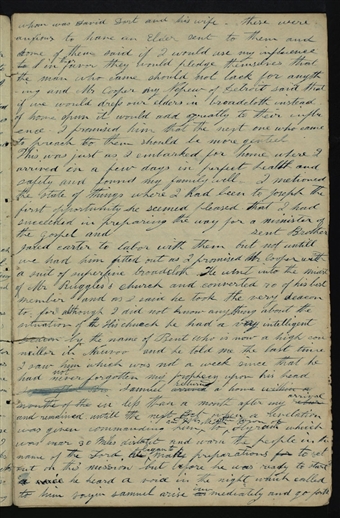 whom was David Dort and his wife. There were
anxious to have an Elder sent to them and
some of them said if I would use my influence
to in their favor they would pledge themselves that
the man who came should not lack for anyth
ing and Mr Cooper my Nephew of Detroit said that
if we would dress our elders in broadcloth instead
of homespun it would add equally to their influ
ence. I promised him that the next one who came
to preach to them should be more genteel
This was just as I embarked for home where I
arrived in a few days in perfect health and
safety and found my family well. I mentioned
the state of things where I had been to Joseph the
first opportunity he seemed pleased that I had
succeeded in preparing the way for a minister of
the Gospel and sent Brother
Jared carter to labor with them but not untill
we had him fitted out as I promised Mr Cooper with
a suit of superfine broadcloth. He went into the midst
of Mr Ruggles's church and converted 70 of his best
member and as I said he took the very deacon
to, for although I did not know anything about the
situation of the Church he had a very intelligent
by the name of Bent who is now a high coun
cillor in Nauvoo and he told me the last time
I saw him which was not a week since that he
had not forgotten my prophecy upon his head
Samuel returned home within a
month of the in less than a month after my arrival
and remained untill the when a revelation
was given commanding
was more 30 miles distant and warn the people in the
name of the Lord, he made preparations to set
out on this mission but before he was ready to start
he heard a voice in the night which called
to him saying samuel arise immediately and go forth